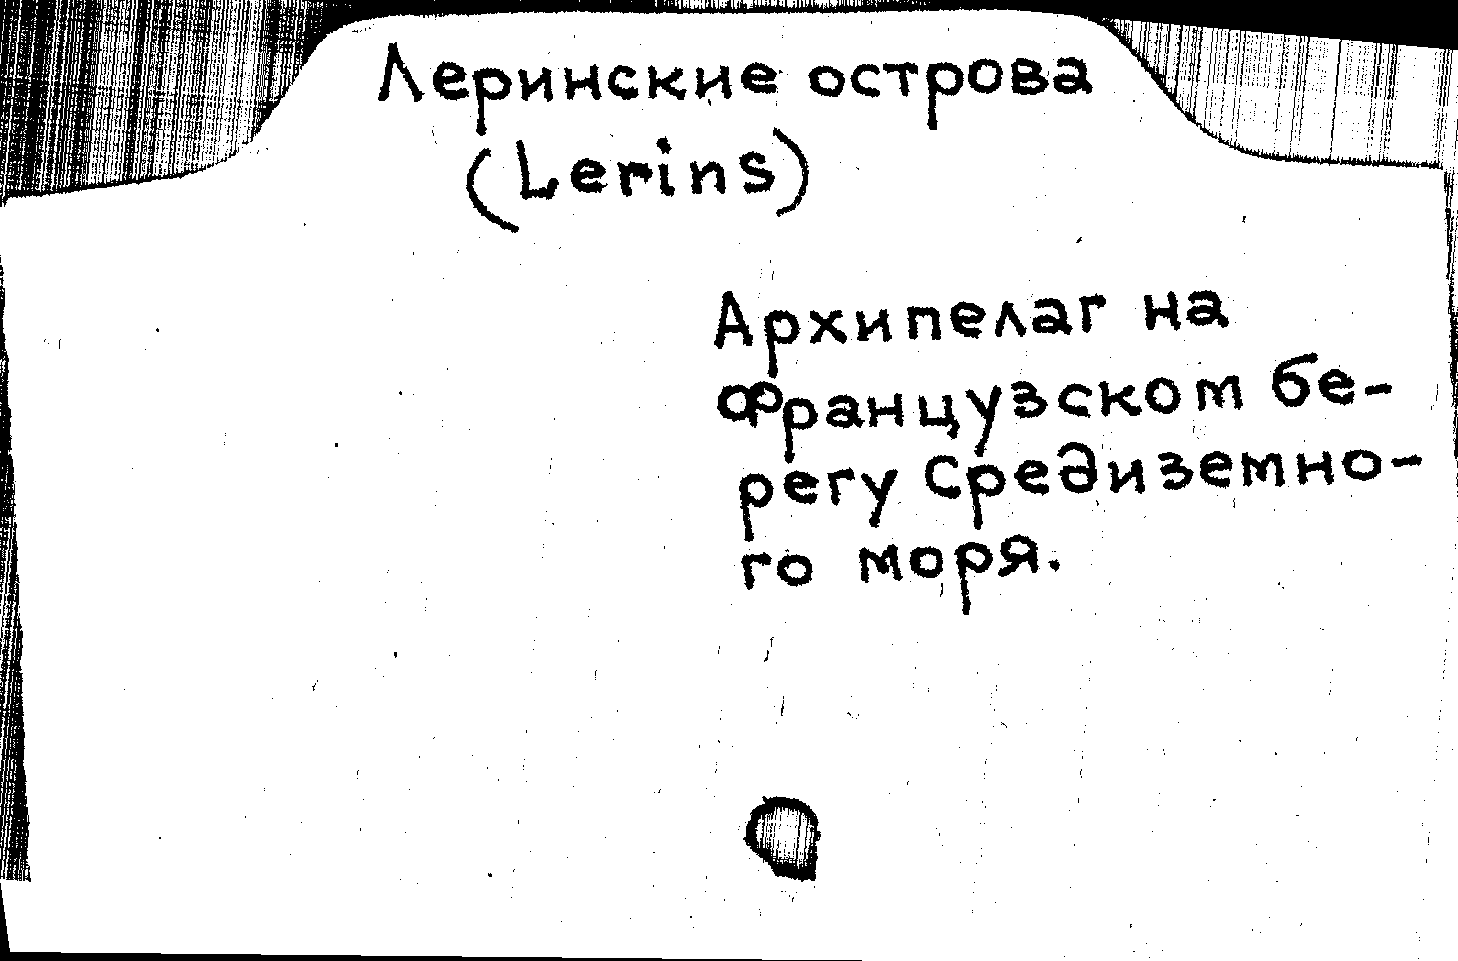 Леринские острова
(Lerins)
Архипелаг на
французском бе-
регу Средиземно-
го моря.